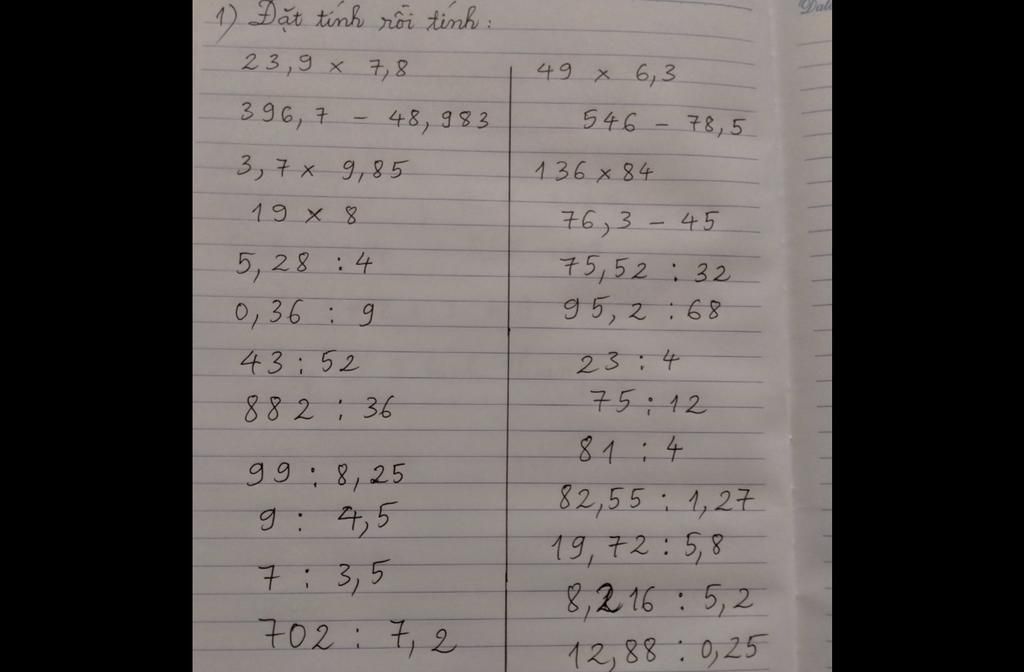 1) Đặt tính rồi tính:
23,9 × 7,8
396,7 - 48,983
3,7 × 9,85
19 × 8
5,28 : 4
0,36 : 9
43 : 52
882 : 36
99 : 8,25
9 : 4,5
7 : 3,5
702 : 7,2
49 × 6,3
546 - 78,5
136 × 84
76,3 - 45
75,52 : 32
95,2 : 68
23 : 4
75 : 12
81 : 4
82,55 : 1,27
19,72 : 5,8
8,216 : 5,2
12,88 : 0,25